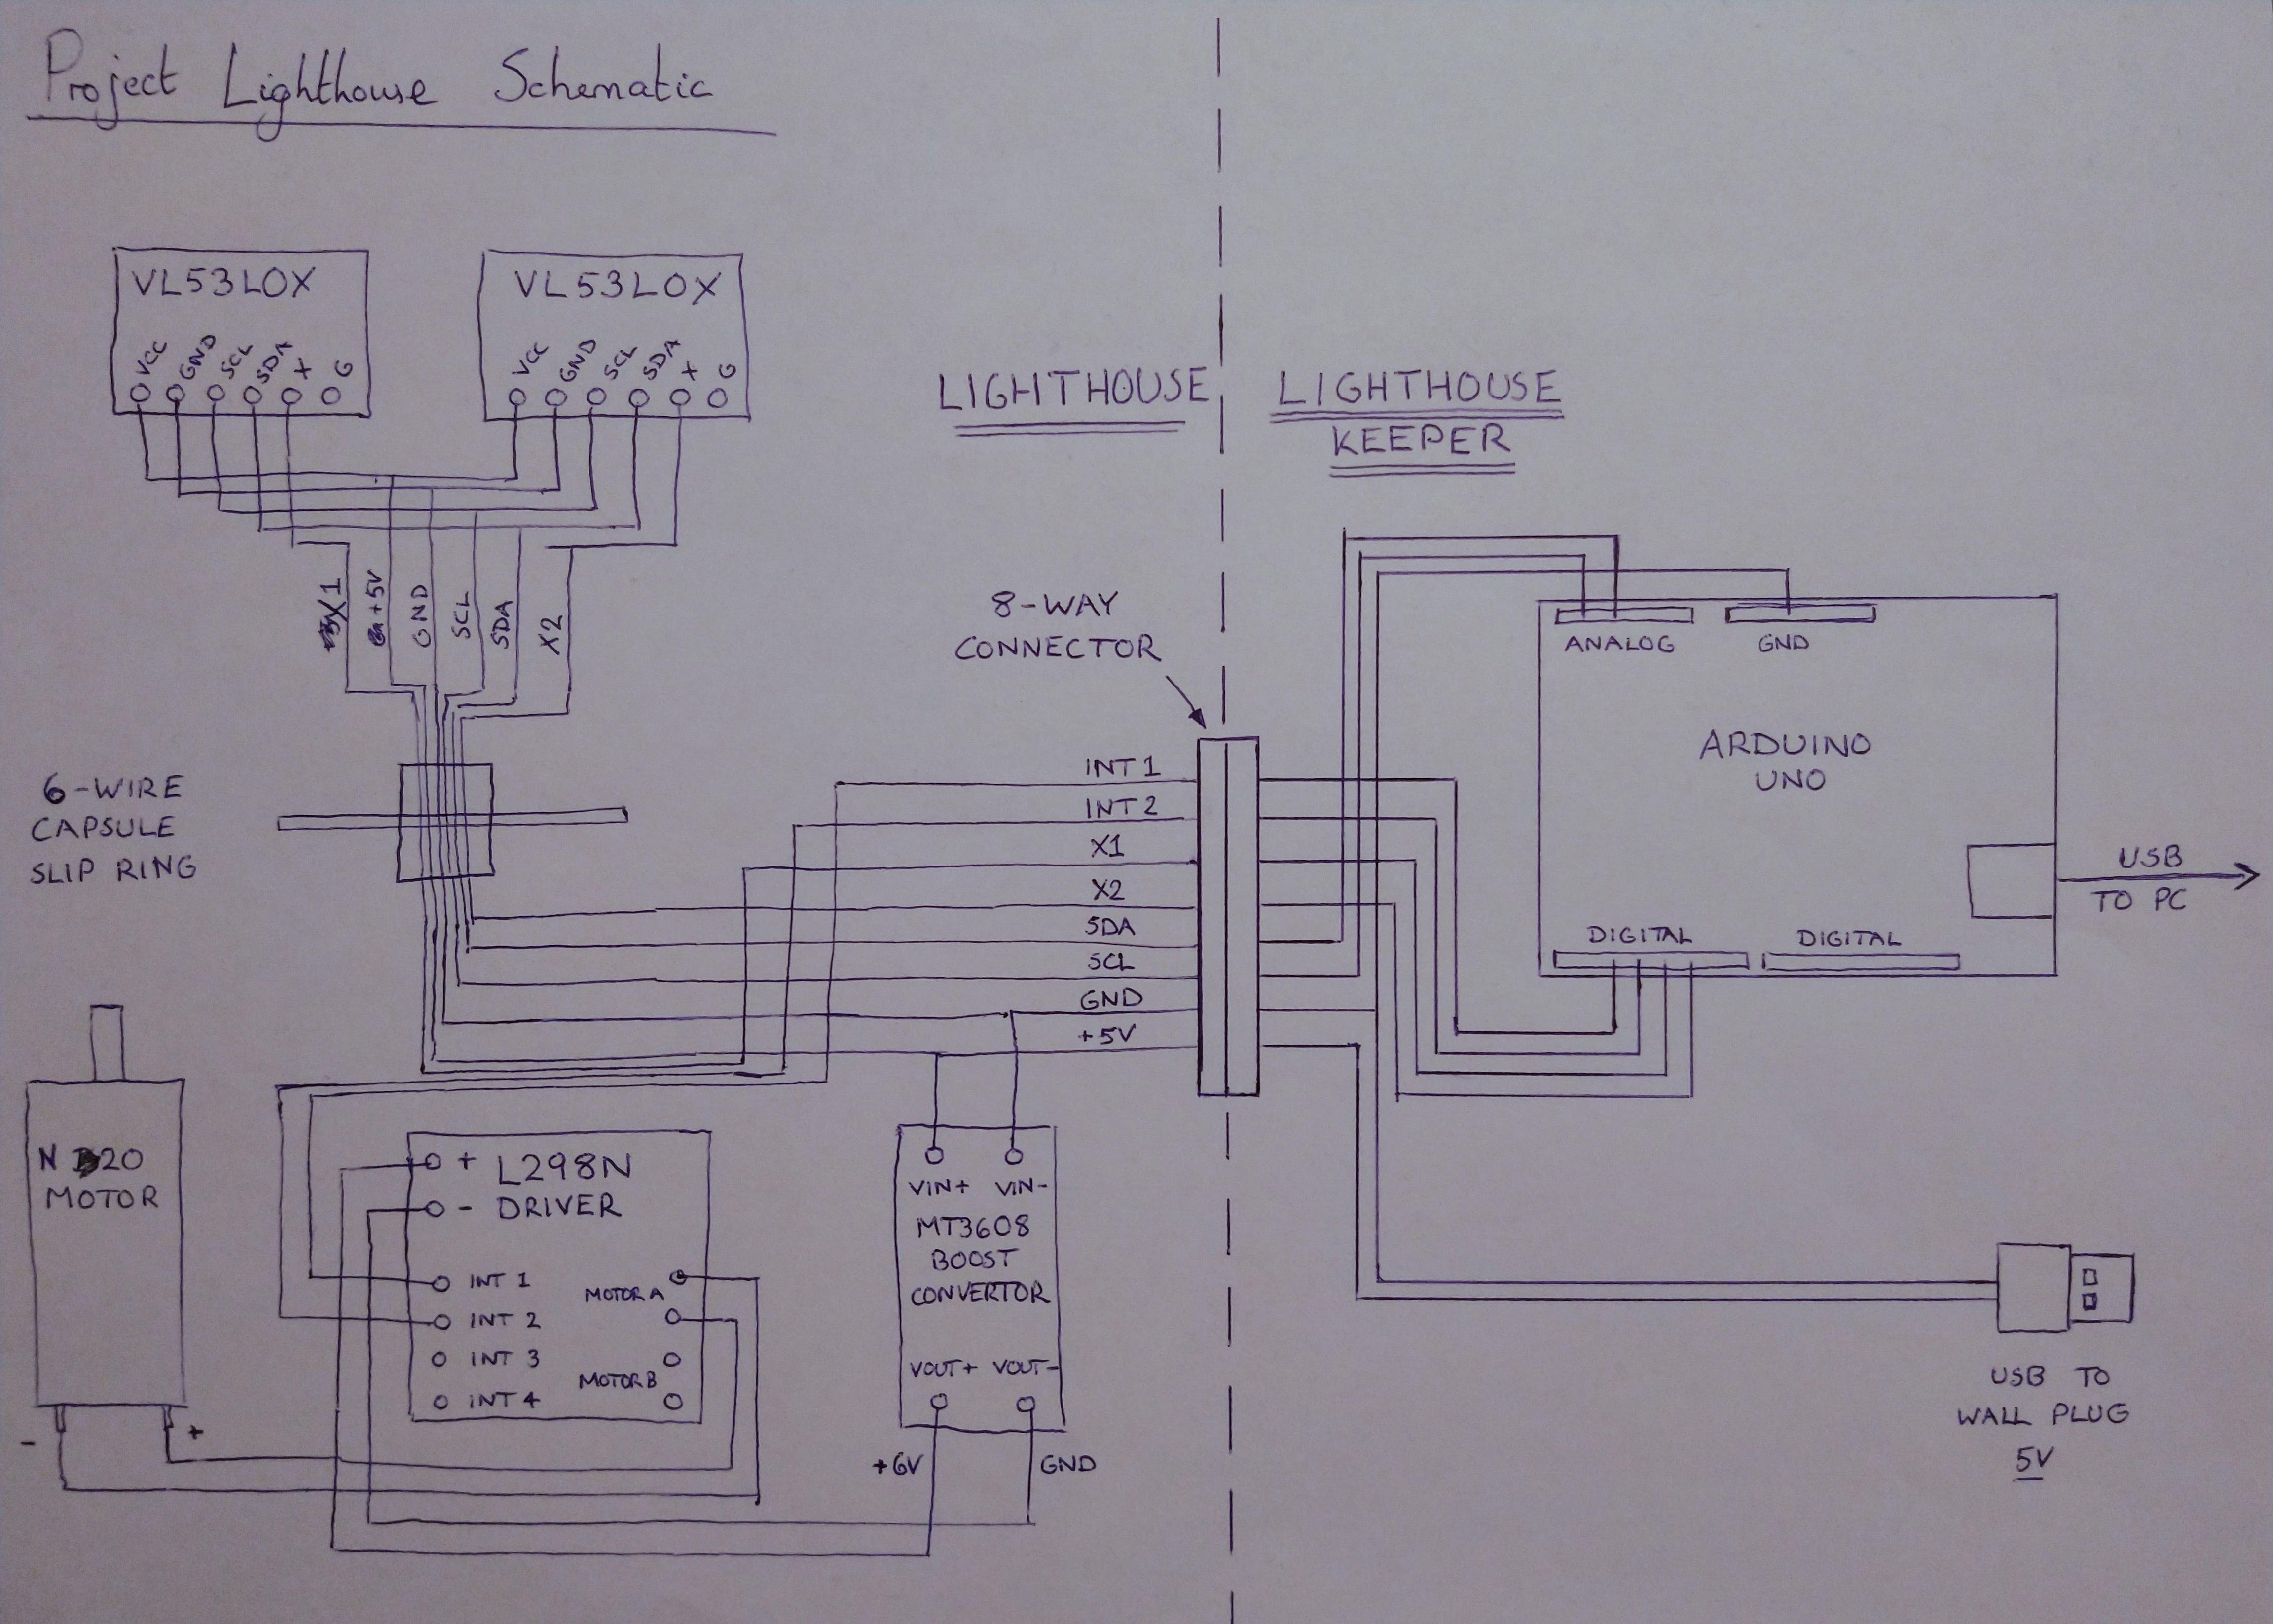 Project Lighthouse Schematic
VL53L0X
VCC GND SCL SDA X G
VL53L0X
VCC GND SCL SDA X G
LIGHTHOUSE
LIGHTHOUSE
KEEPER
X1 +5V GND SCL SDA X2
8-WAY
CONNECTOR
ANALOG
GND
ARDUINO
UNO
DIGITAL
DIGITAL
USB
TO PC
6-WIRE
CAPSULE
SLIP RING
INT 1
INT 2
X1
X2
SDA
SCL
GND
+5V
N 20
MOTOR
-
+
+ L298N
- DRIVER
INT 1
INT 2
INT 3
INT 4
MOTOR A
MOTOR B
VIN+ VIN-
MT3608
BOOST
CONVERTOR
VOUT+ VOUT-
+6V
GND
USB TO
WALL PLUG
5V